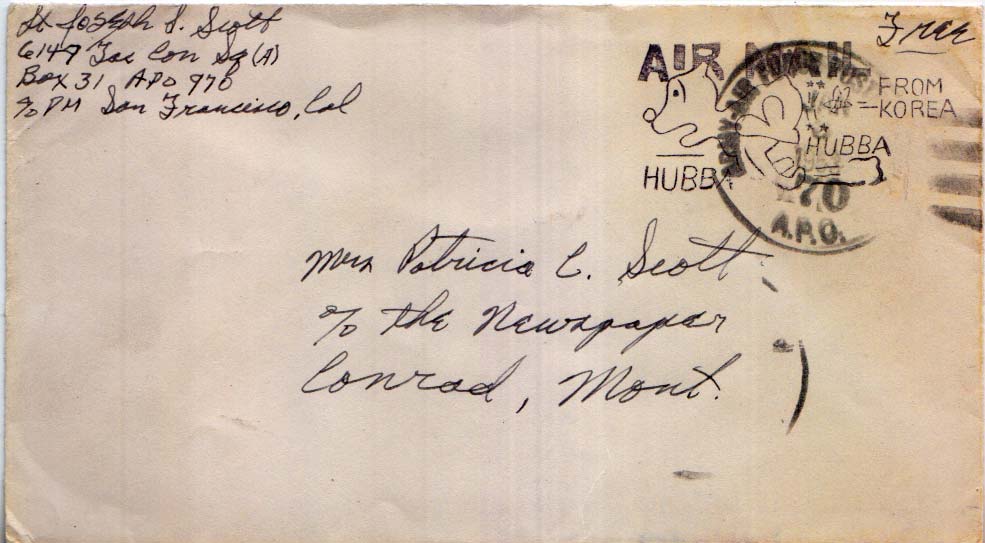 Lt Joseph S. Scott
6147 Tac Con Sq (A)
Box 31 APO 970
℅ PM San Francisco, Cal
Free
AIR MAIL
ARMY-AIR FORCE POSTAL
FROM
KOREA
HUBBA
HUBBA
970
A.P.O.
Mrs Patricia C. Scott
℅ the Newspaper
Conrad, Mont.